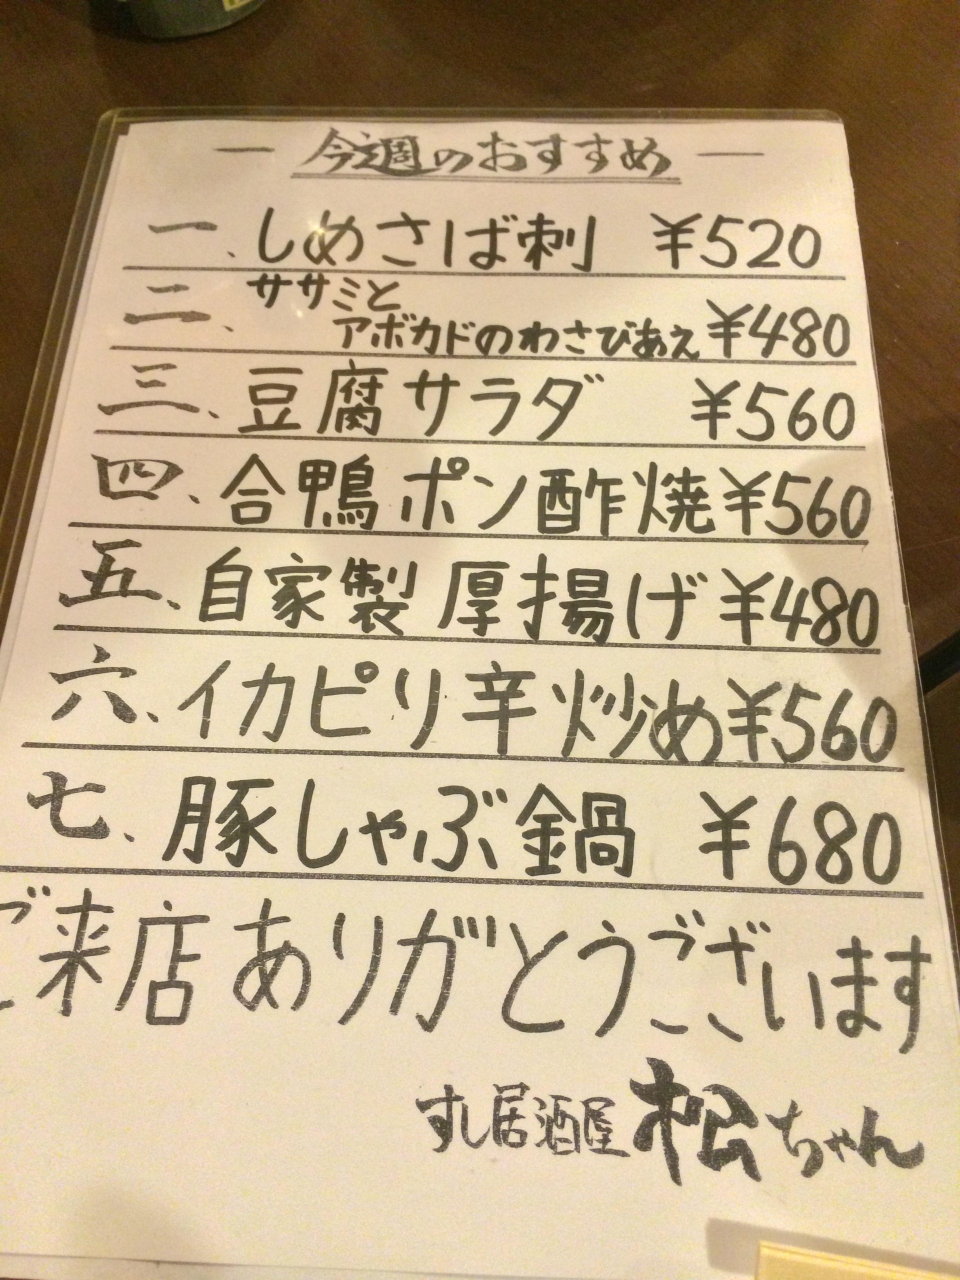 — 今週のおすすめ —
一、しめさば刺 ¥520
二、ササミと
アボカドのわさびあえ ¥480
三、豆腐サラダ ¥560
四、合鴨ポン酢焼 ¥560
五、自家製厚揚げ ¥480
六、イカピリ辛炒め ¥560
七、豚しゃぶ鍋 ¥680
ご来店ありがとうございます
すし居酒屋 松ちゃん